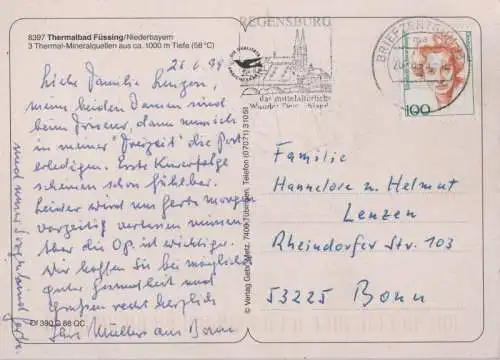 8397 Thermalbad Füssing/Niederbayern
3 Thermal-Mineralquellen aus ca. 1000 m Tiefe (58 °C)
Liebe Familie Lenzen,
meine beiden Damen sind
beim Friseur, dann muss ich
in meiner "Freizeit" die Post
erledigen. Erste Kurerfolge
scheinen schon fühlbar.
Leider wird uns Gerta morgen
vorzeitig verlassen müssen
Aber die Op. ist wichtiger.
Wir hoffen Sie bei möglichst
guter Gesundheit und
grüßen recht herzlich
Ihre Müller aus Bonn
und unser
Df 390 G 88 QC
© Verlag Gebr. Metz, 7400 Tübingen, Telefon (07071) 31091
REGENSBURG
das mittelalterliche
BRIEFZENTRUM
100
Familie
Hannelore u. Helmut
Lenzen
Rheindorfer Str. 103
53225 Bonn